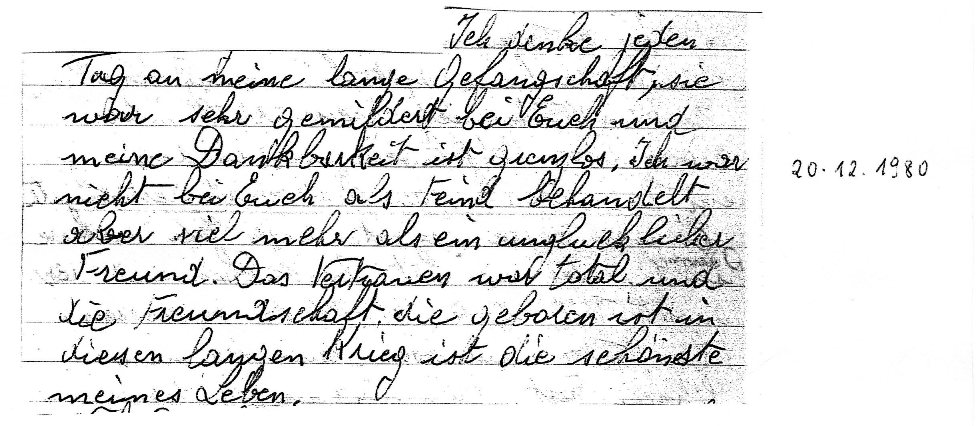 Ich denke jeden
Tag an meine lange Gefangschaft, sie
war sehr gemildert bei Euch und
meine Dankbarkeit ist grenzlos. Ich war
nicht bei Euch als Feind behandelt
aber viel mehr als ein unglucklicher
Freund. Das Vertrauen war total und
die Freundschaft, die geboren ist in
diesen langen Krieg ist die schönste
meines Leben.
20.12.1980